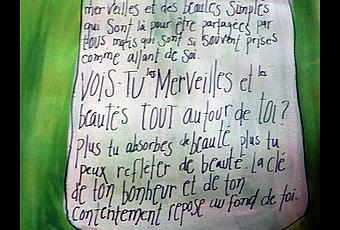 merveilles et des beautés simples
qui sont là pour être partagées par
tous mais qui sont si souvent prises
comme allant de soi.
VOIS-TU les Merveilles et les
beautés TOUT autour de toi?
plus tu absorbes de beauté plus tu
peux refléter de beauté. la clé
de ton bonheur et de ton
contentement repose au fond de toi.